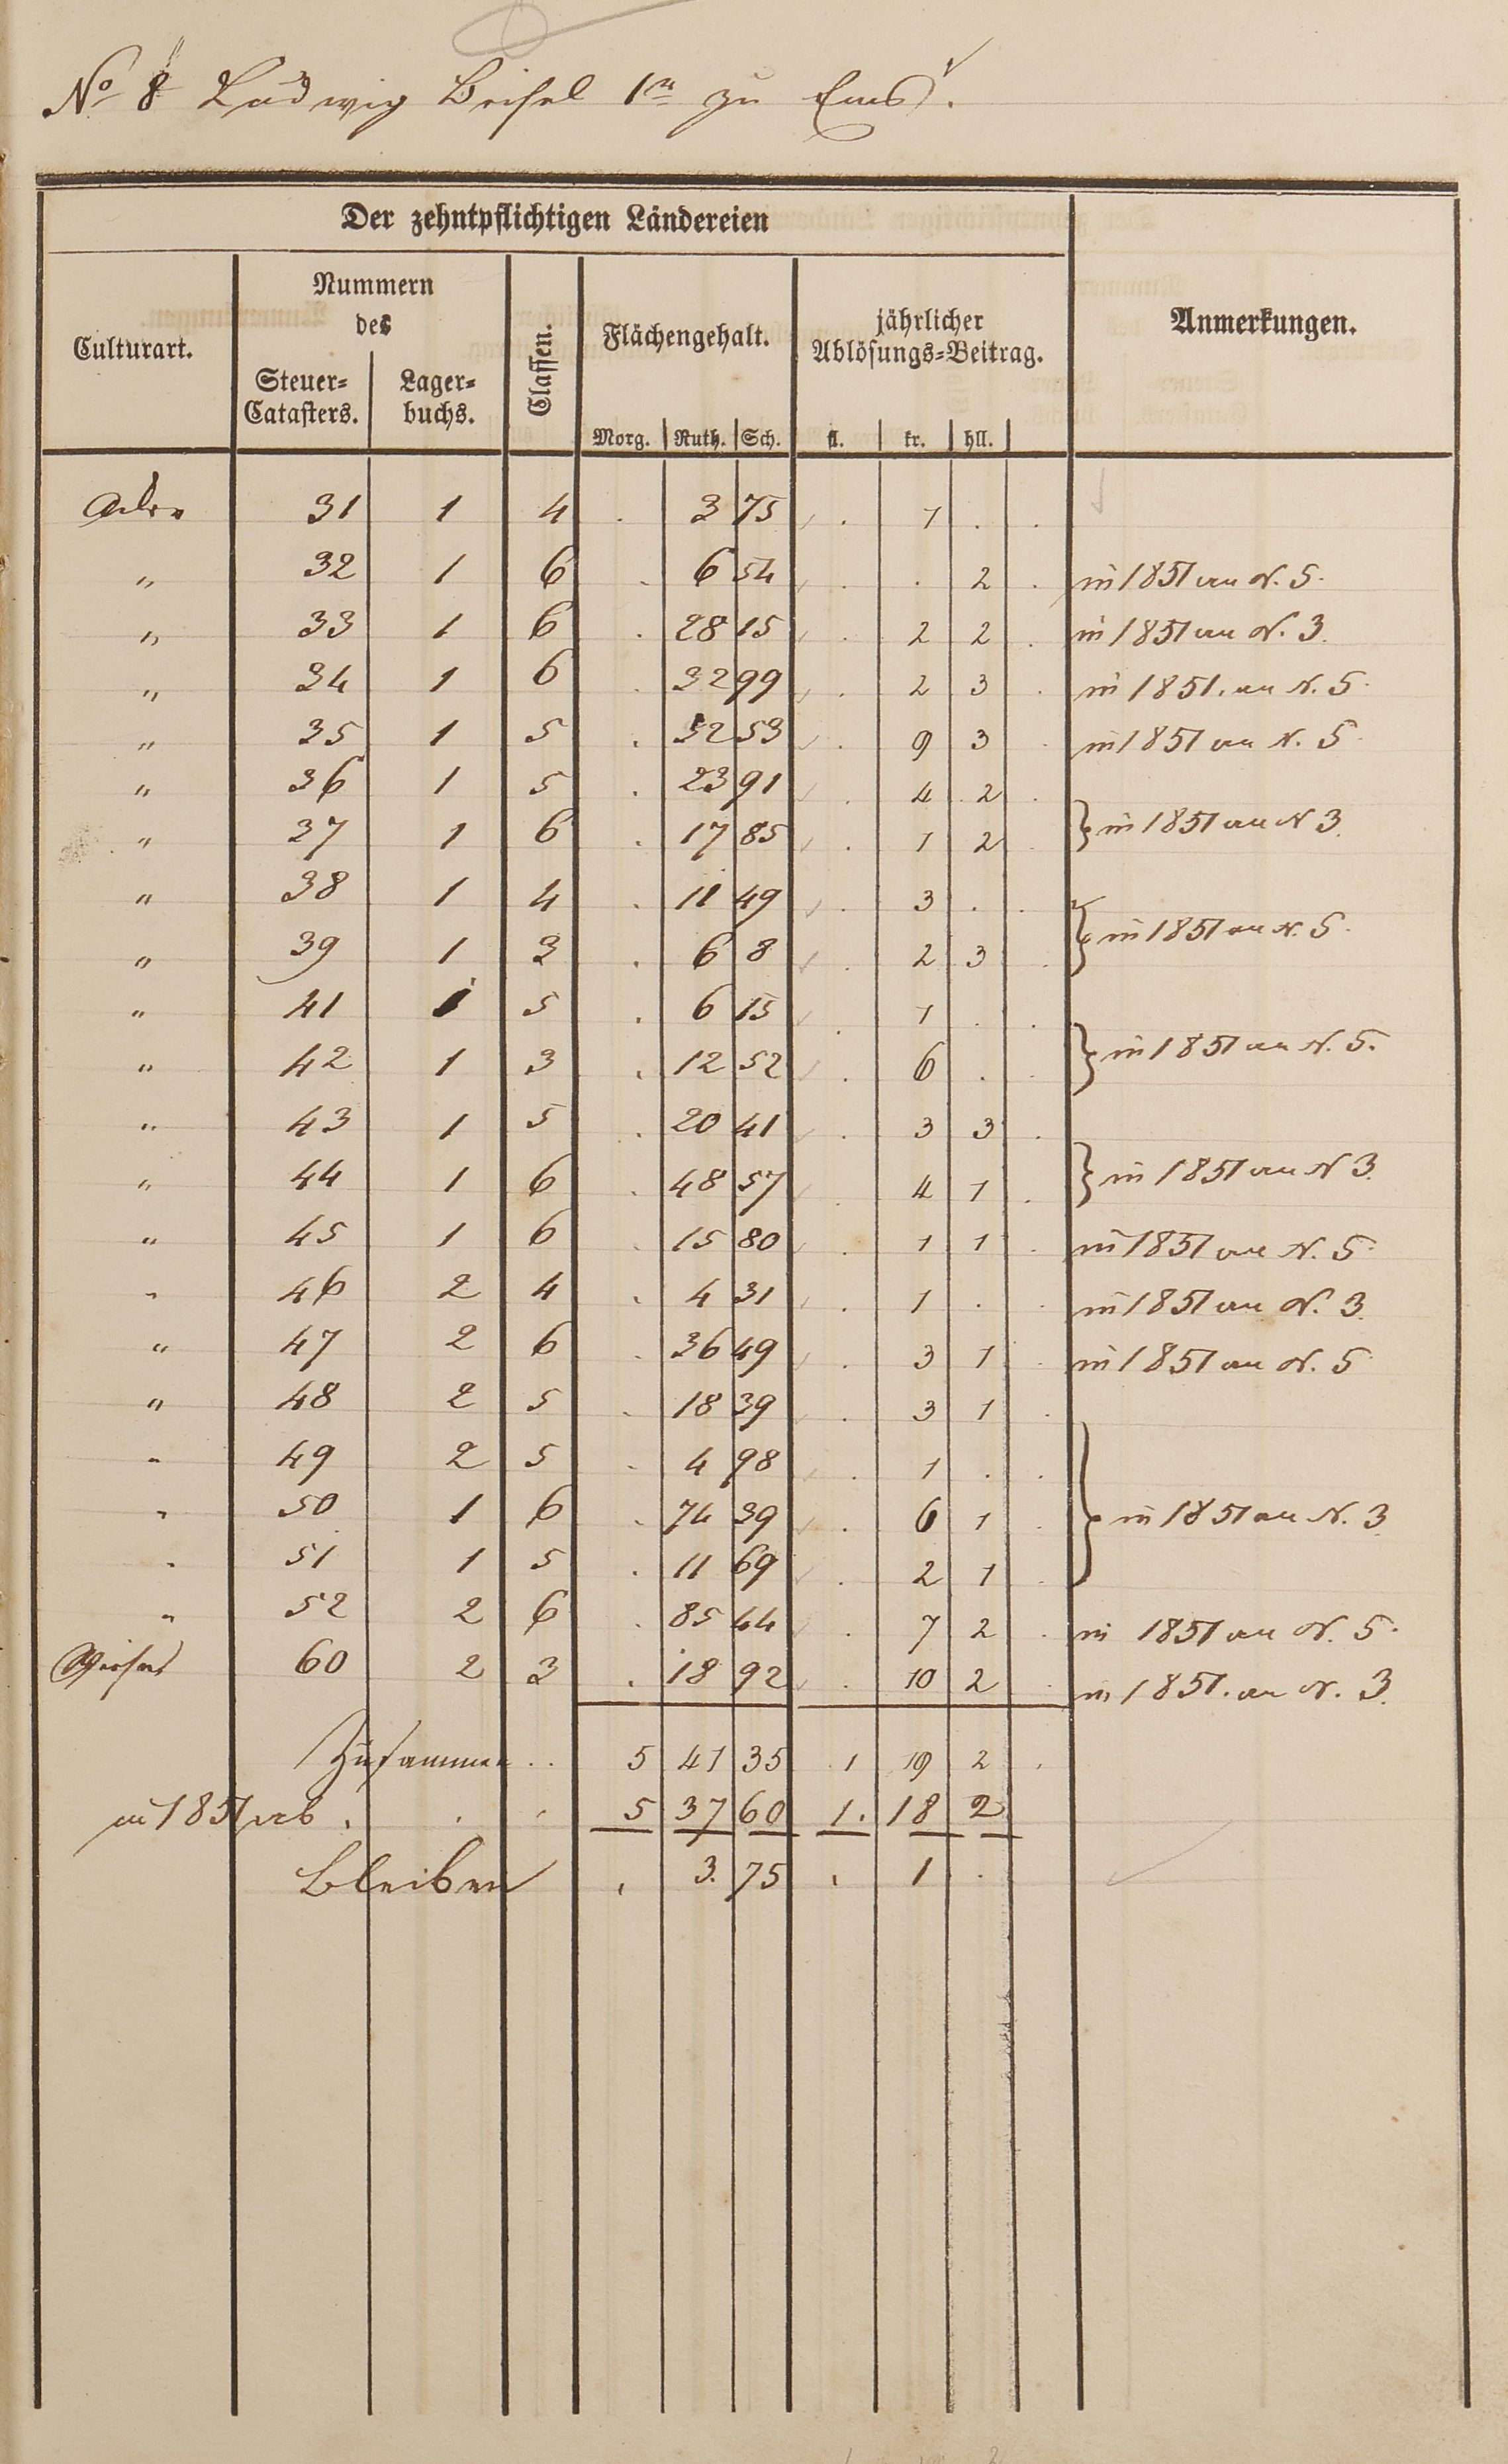 No 8 Ludwig Beisel 1r zu Ems.
Der zehntpflichtigen Ländereien
Culturart.
Nummern
des
Steuer-
Catasters.
Lager-
buchs.
Classen.
Flächengehalt.
Morg. Ruth. Sch.
jährlicher
Ablösungs-Beitrag.
fl. kr. hll.
Anmerkungen.
Acker 31 1 4 . 3 75 . 1 . .
" 32 1 6 . 6 54 . . 2 . in 1851 an N. 5.
" 33 1 6 . 28 15 . 2 2 . in 1851 an N. 3.
" 34 1 6 . 32 99 . 2 3 . in 1851. an N. 5.
" 35 1 5 . 52 53 . 9 3 . in 1851 an N. 5
" 36 1 5 . 23 91 . 4 2 .
" 37 1 6 . 17 85 . 1 2 . } in 1851 an N 3.
" 38 1 4 . 11 49 . 3 . .
" 39 1 3 . 6 8 . 2 3 . } in 1851 an N. 5.
" 41 1 5 . 6 15 . 1 . .
" 42 1 3 . 12 52 . 6 . . } in 1851 an N. 5.
" 43 1 5 . 20 41 . 3 3 .
" 44 1 6 . 48 57 . 4 1 . } in 1851 an N 3.
" 45 1 6 . 15 80 . 1 1 . in 1851 an N. 5.
" 46 2 4 . 4 31 . 1 . . in 1851 an N. 3.
" 47 2 6 . 36 49 . 3 1 . in 1851 an N. 5
" 48 2 5 . 18 39 . 3 1 .
" 49 2 5 . 4 98 . 1 . .
" 50 1 6 . 74 39 . 6 1 . } in 1851 an N. 3.
" 51 1 5 . 11 69 . 2 1 .
" 52 2 6 . 85 44 . 7 2 . in 1851 an N. 5.
Wiesen 60 2 3 . 18 92 . 10 2 . in 1851. an N. 3.
Zusammen . . 5 41 35 1 19 2 .
in 1851 ab . . . 5 37 60 1. 18 2
Bleiben . 3. 75 . 1 .